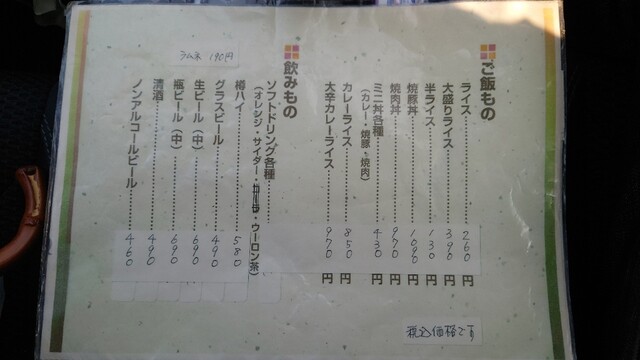 ご飯もの
ライス………………260円
大盛りライス………390円
半ライス……………130円
焼豚丼………………1090円
焼肉丼………………970円
ミニ丼各種…………430円
(カレー・焼豚・焼肉)
カレーライス………850円
大辛カレーライス…970円
飲みもの
ラムネ 190円
ソフトドリンク各種……
(オレンジ・サイダー・コーラ・ウーロン茶)
樽ハイ………………580
グラスビール………490
生ビール(中)………690
瓶ビール(中)………690
清酒…………………490
ノンアルコールビール…460
税込価格です